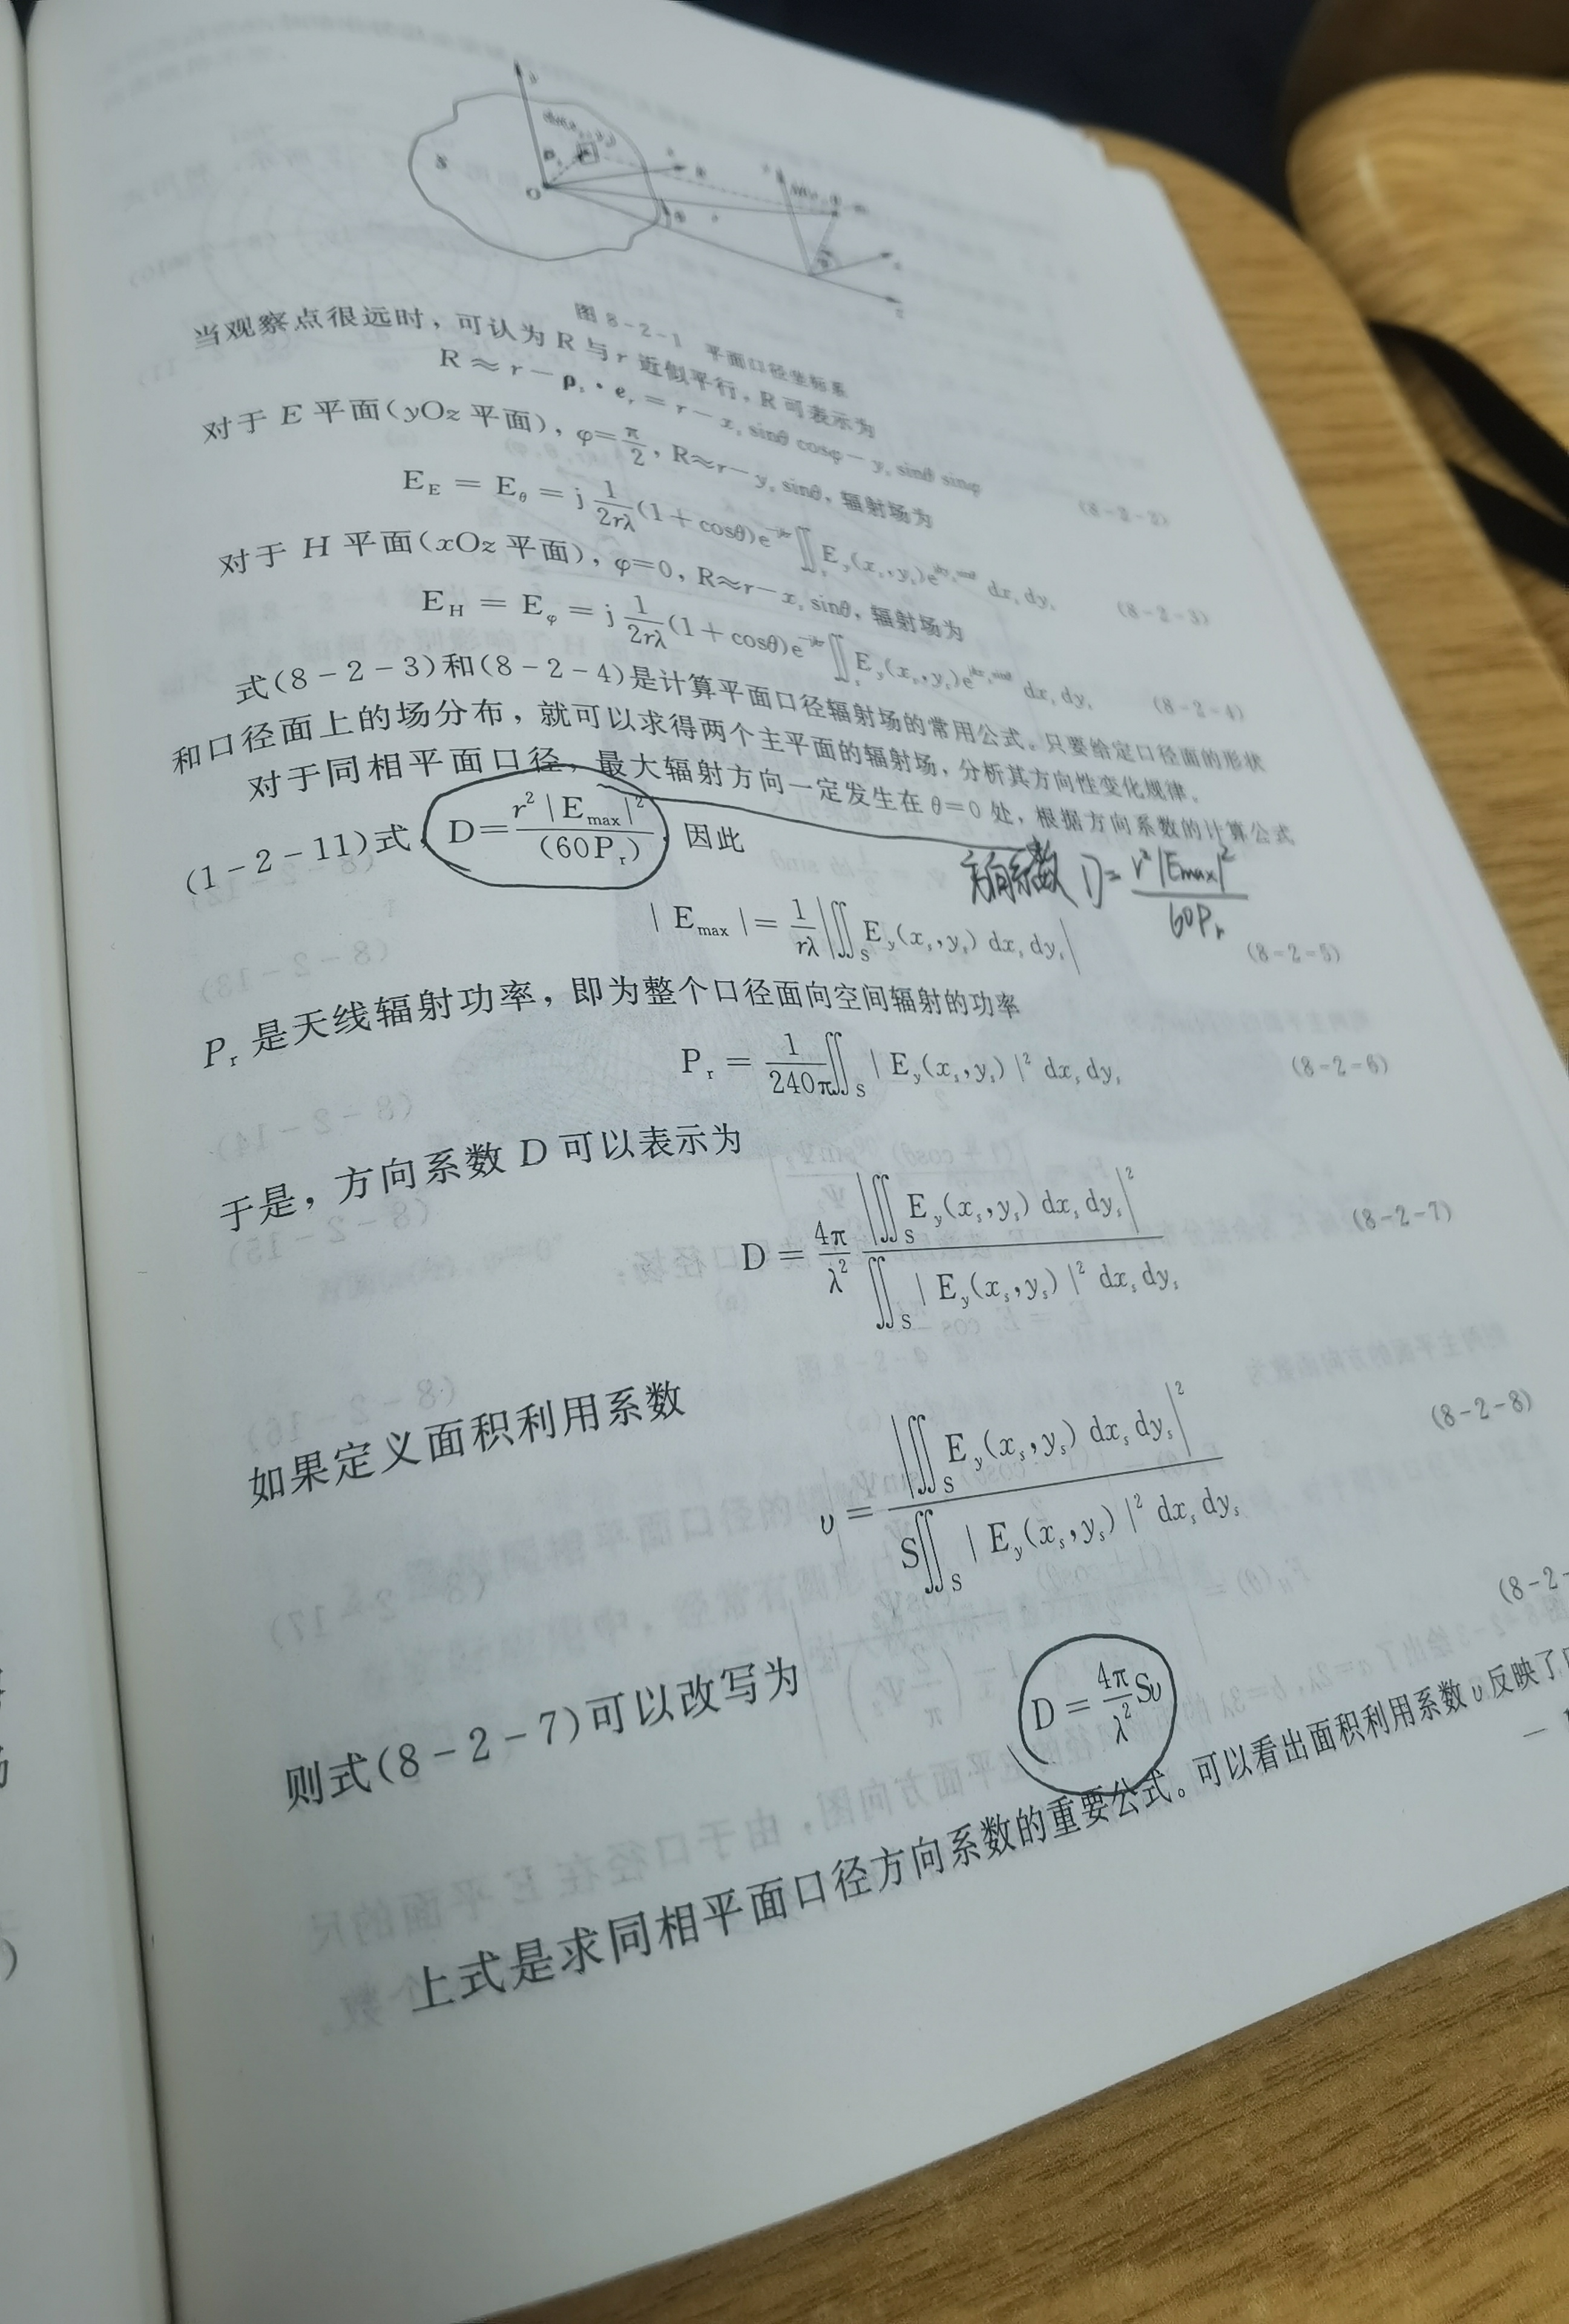 S
O
R
图 8-2-1 平面口径坐标系
当观察点很远时，可认为 R 与 r 近似平行，R 可表示为
R ≈ r − ρₛ · eᵣ = r − xₛ sinθ cosφ − yₛ sinθ sinφ (8-2-2)
对于 E 平面(yOz 平面)，φ=π/2，R≈r−yₛ sinθ，辐射场为
E_E = E_θ = j 1/(2rλ) (1+cosθ)e^(−jkr) ∬ₛ E_y(xₛ,yₛ)e^(jkyₛ sinθ) dxₛ dyₛ (8-2-3)
对于 H 平面(xOz 平面)，φ=0，R≈r−xₛ sinθ，辐射场为
E_H = E_φ = j 1/(2rλ) (1+cosθ)e^(−jkr) ∬ₛ E_y(xₛ,yₛ)e^(jkxₛ sinθ) dxₛ dyₛ (8-2-4)
式(8-2-3)和(8-2-4)是计算平面口径辐射场的常用公式。只要给定口径面的形状
和口径面上的场分布，就可以求得两个主平面的辐射场，分析其方向性变化规律。
对于同相平面口径，最大辐射方向一定发生在 θ=0 处，根据方向系数的计算公式
(1-2-11)式，D=r²|E_max|²/(60Pᵣ)，因此
方向系数 D= r²|Emax|²/60Pᵣ
|E_max| = 1/(rλ) |∬_S E_y(xₛ,yₛ) dxₛ dyₛ| (8-2-5)
Pᵣ 是天线辐射功率，即为整个口径面向空间辐射的功率
Pᵣ = 1/(240π) ∬_S |E_y(xₛ,yₛ)|² dxₛ dyₛ (8-2-6)
于是，方向系数 D 可以表示为
D = 4π/λ² |∬_S E_y(xₛ,yₛ) dxₛ dyₛ|² / ∬_S |E_y(xₛ,yₛ)|² dxₛ dyₛ (8-2-7)
如果定义面积利用系数
υ = |∬_S E_y(xₛ,yₛ) dxₛ dyₛ|² / S∬_S |E_y(xₛ,yₛ)|² dxₛ dyₛ (8-2-8)
则式(8-2-7)可以改写为
D = 4π/λ² Sυ (8-2-
上式是求同相平面口径方向系数的重要公式。可以看出面积利用系数 υ 反映了